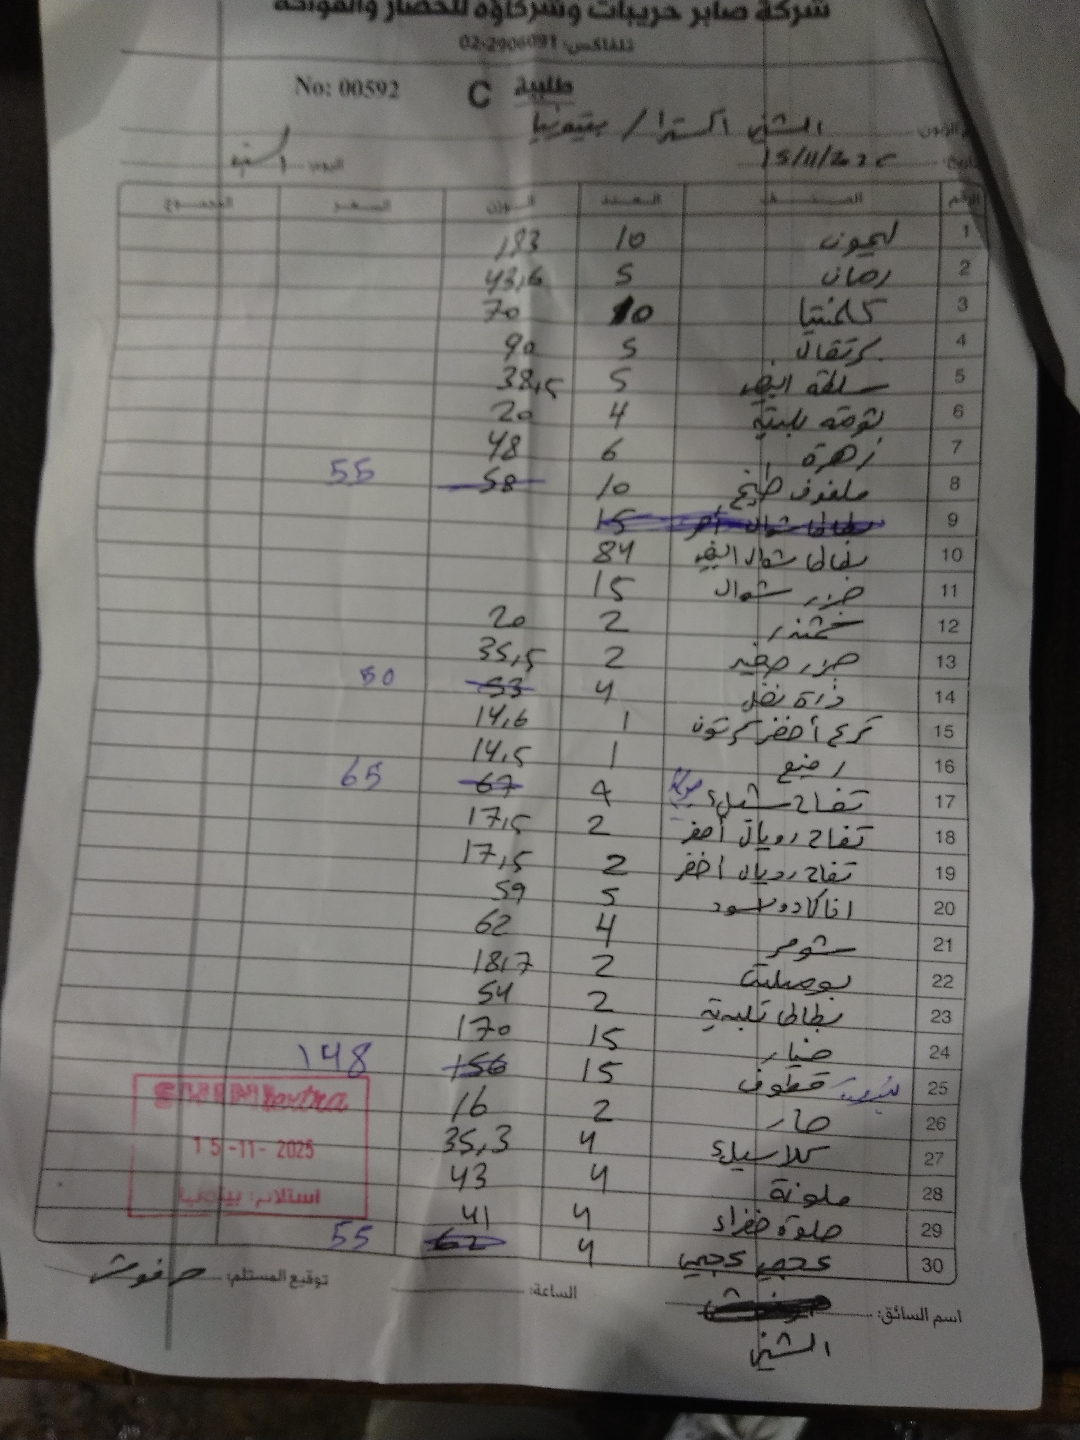 شركة صابر حريبات وشركاؤه للخضار والفواكه
تلفاكس: 02-2906091
No: 00592 C طلبية
الزبون: الشني اكسترا / بيتونيا
التاريخ: 15/11/2025 اليوم: السبت
الرقم الصنف العدد الوزن السعر المجموع
1 ليمون 10 183
2 رمان 5 43,6
3 كلمنتينا 10 70
4 برتقال 5 90
5 سلطة ابيض 5 38,5
6 ثومة بلبتية 4 20
7 زهرة 6 48
8 ملفوف طبيخ 10 58 55
9 بطاطا شوال أحمر 15
10 بطاطا شوال ابيض 84
11 جزر شوال 15
12 شمندر 2 20
13 جزر صغير 2 35,5
14 ذرة نخل 4 53 50
15 قرع أخضر كرتون 1 14,6
16 رضيع 1 14,5
17 تفاح ستيل 4 67 65
18 تفاح رويال أصفر 2 17,5
19 تفاح رويال أخضر 2 17,5
20 افاكادو اسود 5 59
21 شومر 4 62
22 بوملي 2 18,7
23 بطاطا تلبيتة 2 54
24 خيار 15 170
25 قطوف 15 156 148
26 حار 2 16
27 كلاسيك 4 35,3
28 ملونة 4 43
29 حلوة خضراء 4 41
30 عجمي عجمي 4 62 55
SHINI extra
15-11-2025
استلام: بيتونيا
اسم السائق: الساعة: توقيع المستلم:
الشني